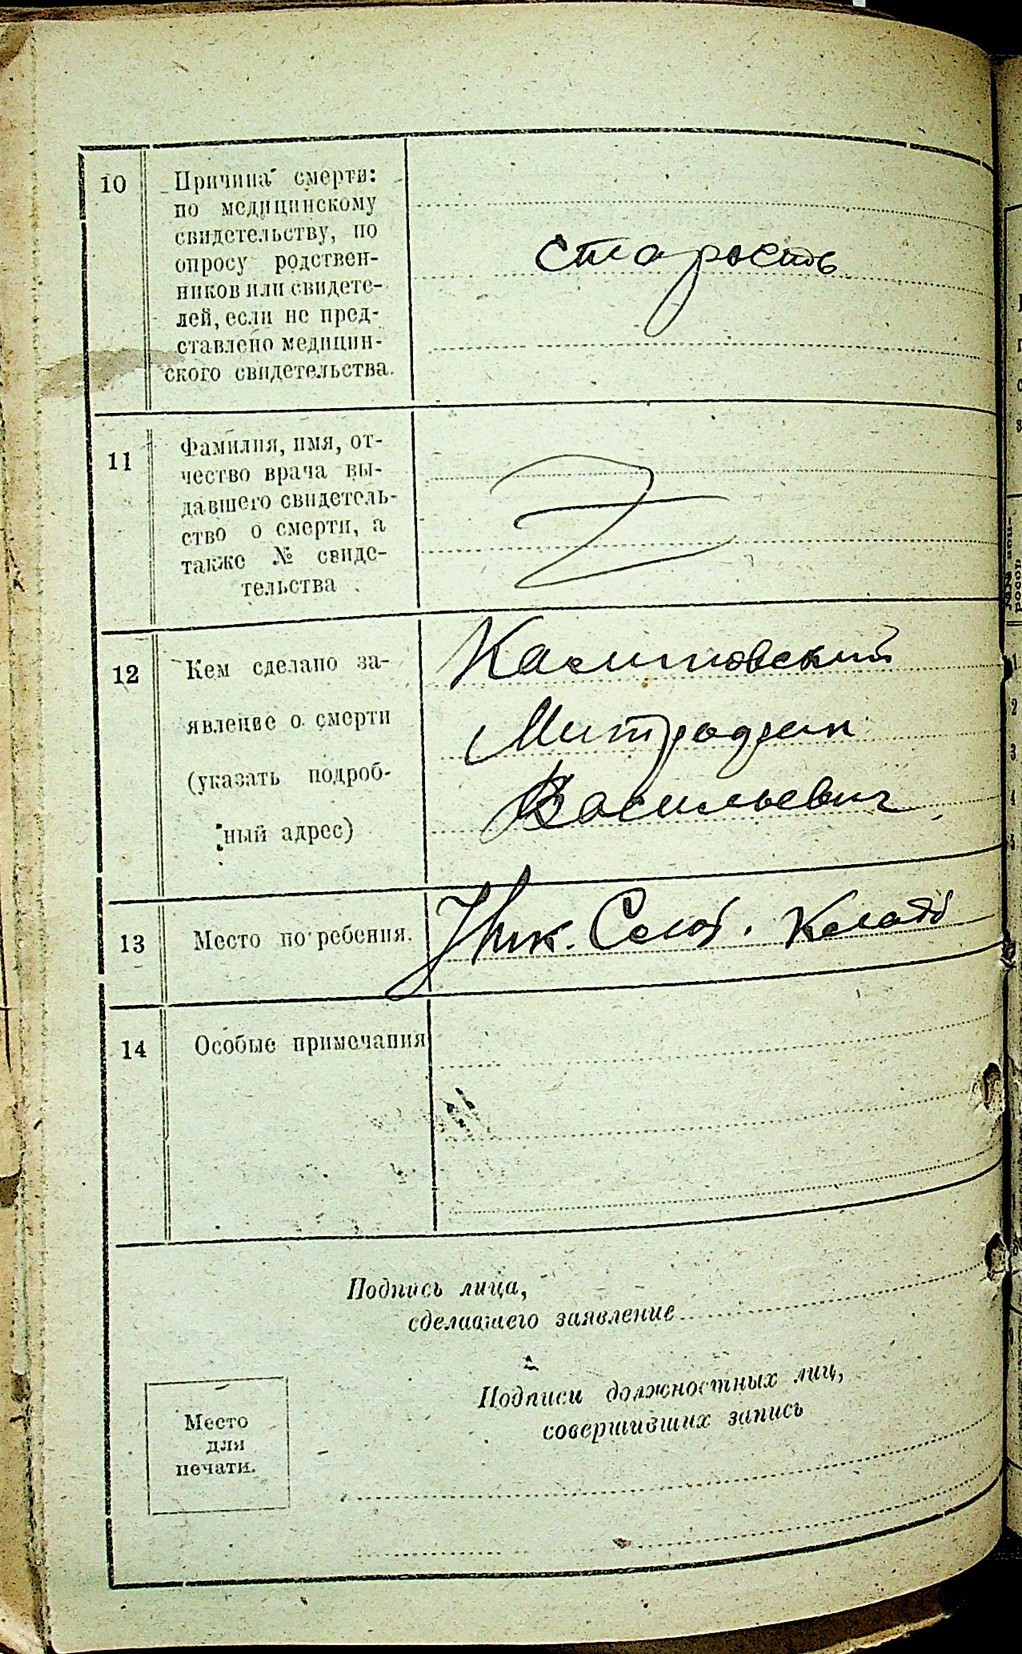 10
Причина смерти:
по медицинскому
свидетельству, по
опросу родствен-
ников или свидете-
лей, если не пред-
ставлено медицин-
ского свидетельства.
старость
11
Фамилия, имя, от-
чество врача вы-
давшего свидетель-
ство о смерти, а
также № свиде-
тельства
12
Кем сделано за-
явление о смерти
(указать подроб-
ный адрес)
Митрофан
Васильевич
13
Место погребения.
Ник. Слоб. Кладб
14
Особые примечания
Подпись лица,
сделавшего заявление
Подписи должностных лиц,
совершивших запись
Место
для
печати.